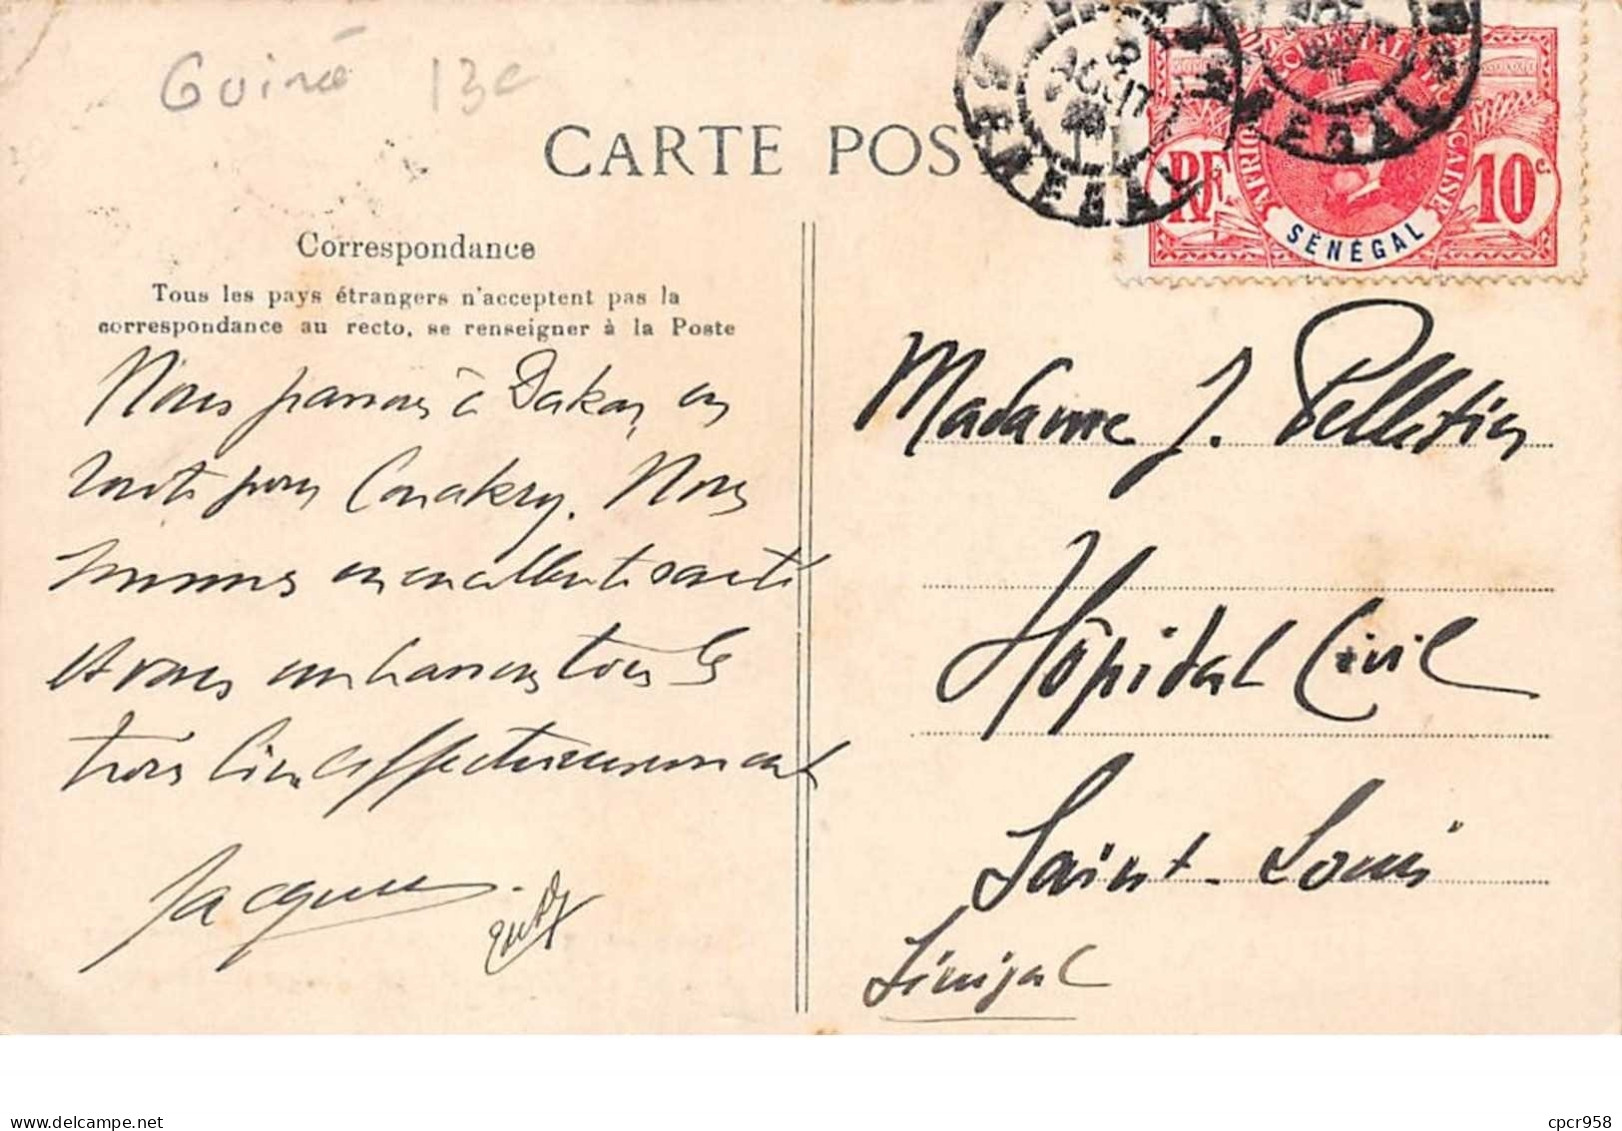 Guinée 13c
CARTE POS
Correspondance
Tous les pays étrangers n'acceptent pas la
correspondance au recto, se renseigner à la Poste
Nous passons à Dakar, en
route pour Conakry. Nous
sommes en excellente santé
et vous embrassons tous les
trois bien affectueusement
Jacques
8
AOUT
11
SENEGAL
SENEGAL
AFRIQUE OCCIDENTALE FRANÇAISE
RF
10c.
SÉNÉGAL
Madame J. Pelletier
Hôpital Civil
Saint-Louis
Sénégal
delcampe.net
cpcr958